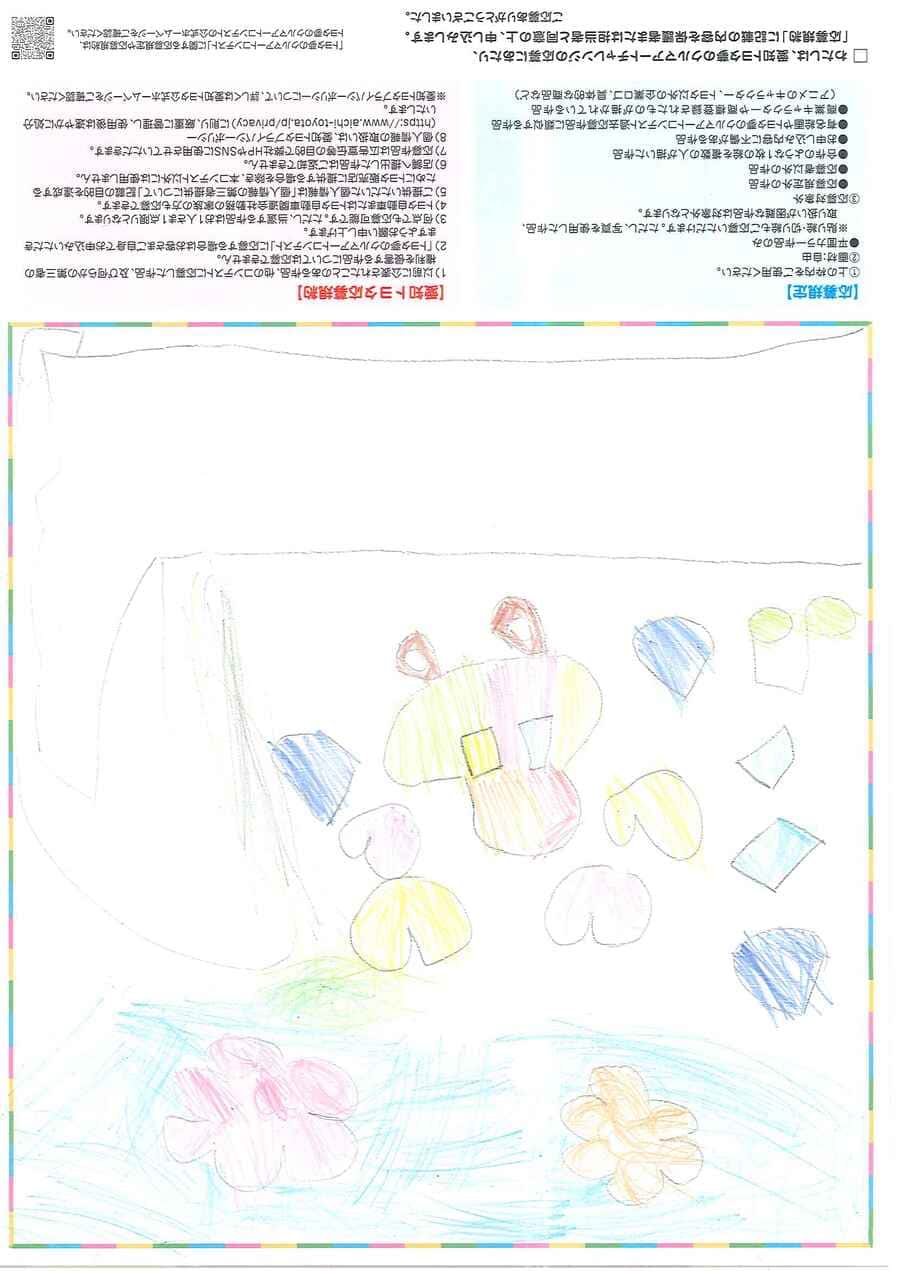 【応募規定】
①上の枠内をご使用ください。
②画材:自由
●平面カラー作品のみ
※貼り絵・切り絵もご応募いただけます。ただし、写真を使用した作品、
取り扱いが困難な作品は対象外となります。
③応募対象外
●応募規定外の作品
●応募者以外の作品
●合作のような1枚の絵を複数の人が描いた作品
●お申し込み内容に不備がある作品
●有名絵画やトヨタ夢のクルマアートコンテスト過去応募作品に類似する作品
●商業キャラクターや商標登録されたものが描かれている作品
(アニメのキャラクター、トヨタ以外の企業ロゴ、具体的な商品など)
【愛知トヨタ応募規約】
1)以前に公表されたことのある作品、他のコンテストに応募した作品、及び何らかの第三者の
権利を侵害する作品については応募できません。
2)「トヨタ夢のクルマアートコンテスト」に応募する場合はお客さまご自身でお申込みいただき
ますようお願い申し上げます。
3)何点でも応募可能です。ただし、当選する作品は お1人さま1点限りとなります。
4)トヨタ自動車またはトヨタ自動車関連会社勤務の家族の方も応募できます。
5)ご提供いただいた個人情報は「個人情報の第三者提供について」記載の目的を達成する
ためにトヨタ販売店に提供する場合を除き、本コンテスト以外には使用しません。
6)店舗へ提出した作品はご返却できません。
7)応募作品は広告宣伝等の目的で弊社HPやSNSに使用させていただきます。
8)個人情報の取扱いは、愛知トヨタプライバシーポリシー
(https://www.aichi-toyota.jp/privacy)に則り、厳重に管理し、使用後は速やかに処分
いたします。
※愛知トヨタプライバシーポリシーについて、詳しくは愛知トヨタ公式ホームページをご確認ください。
□ わたしは、愛知トヨタ夢のクルマアートチャレンジの応募にあたり、
「応募規約」に記載の内容を保護者または担当者と同意の上、申し込みします。
ご応募ありがとうございました。
「トヨタ夢のクルマアートコンテスト」に関する応募規定や応募規約は、
トヨタ夢のクルマアートコンテストの公式ホームページをご確認ください。